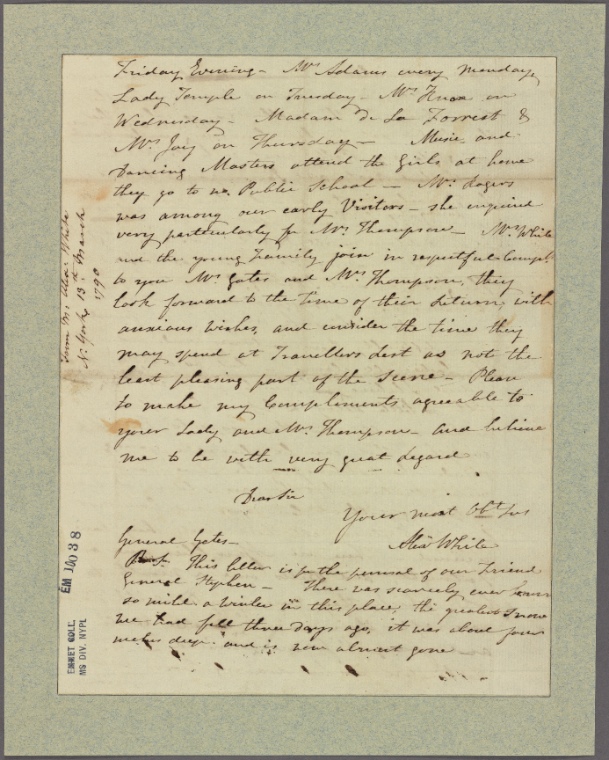 Friday Evening - Mrs Adams every Monday,
Lady Temple on Tuesday - Mrs Knox on
Wednesday - Madam de La Forrest &
Mrs Jay on Thursday - Music and
Dancing Masters attend the Girls at home
they go to no Public School - Mrs Rogers
was among our early Visitors - she enquired
very particularly for Mrs Thompson - Mrs White
and the young Family join in respectful Compts
to you Mrs Gates and Mrs Thompson, they
look forward to the time of their return, with
anxious wishes, and consider the time they
may spend at Travellers Rest as not the
least pleasing part of the Scene - Please
to make my Compliments agreeable to
your Lady and Mrs Thompson - and believe
me to be with very great regard
Dear Sir
Your most Obt Ser
Alexr White
General Gates -
This letter is for the perusal of our Friend
General Stephen - There was scarcely ever
so mild a Winter in this place, the greatest Snow
we had fell three days ago, it was about four
inches deep and is now almost gone
From Mr. Alexr White
N. York, 13th March
1790
EM 10038
EMMET COLL.
MS DIV. NYPL